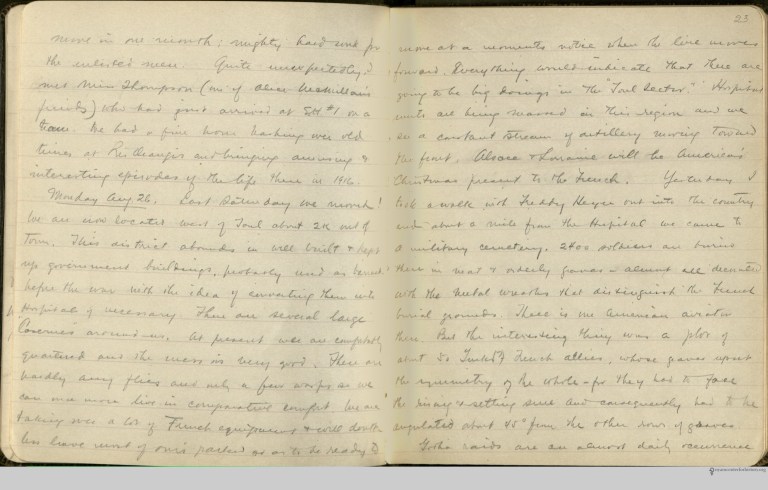 move in one month; mighty hard work for
the enlisted men. Quite unexpectedly I
met Miss Thompson (one of
friends) who had just arrived at #1 on a
team. We had a fine hour hashing over old
times at and bringing amusing &
interesting episodes of the life there in
Monday Aug 26. Last Saturday we moved!
We are now located west of Toul about 2K out of
town. This district abounds in well built & kept
up government buildings, probably used as
before the war with the idea of converting them into
Hospitals if necessary. There are several large
Casernes around us. At present we are comfortably
quartered and the mess is very good. There are
hardly any flies and only a few wasps so we
can once more live in comparative comfort. We are
taking over a lot of French equipment & will doubt-
less leave most of ours packed so as to be ready to
23
move at a moments notice when the line moves
forward. Everything would indicate that there are
going to be big doings in the "Toul Sector." Hospital
units are being massed in this region and we
see a constant stream of artillery moving toward
the front. Alsace & Lorraine will be America's
Christmas present to the French. Yesterday I
took a walk with Freddy out into the country
and about a mile from the Hospital we came to
a military cemetery. 2400 soldiers are buried
there in neat & orderly graves - almost all decorated
with the metal wreaths that distinguish the French
burial grounds. There is one American aviator
there. But the interesting thing was a plot of
about French allies, whose graves upset
the symmetry of the whole - for they had to face
the rising & setting sun and consequently had to be
angulated about 45° from the other rows of graves
Gotha raids are an almost daily occurrence